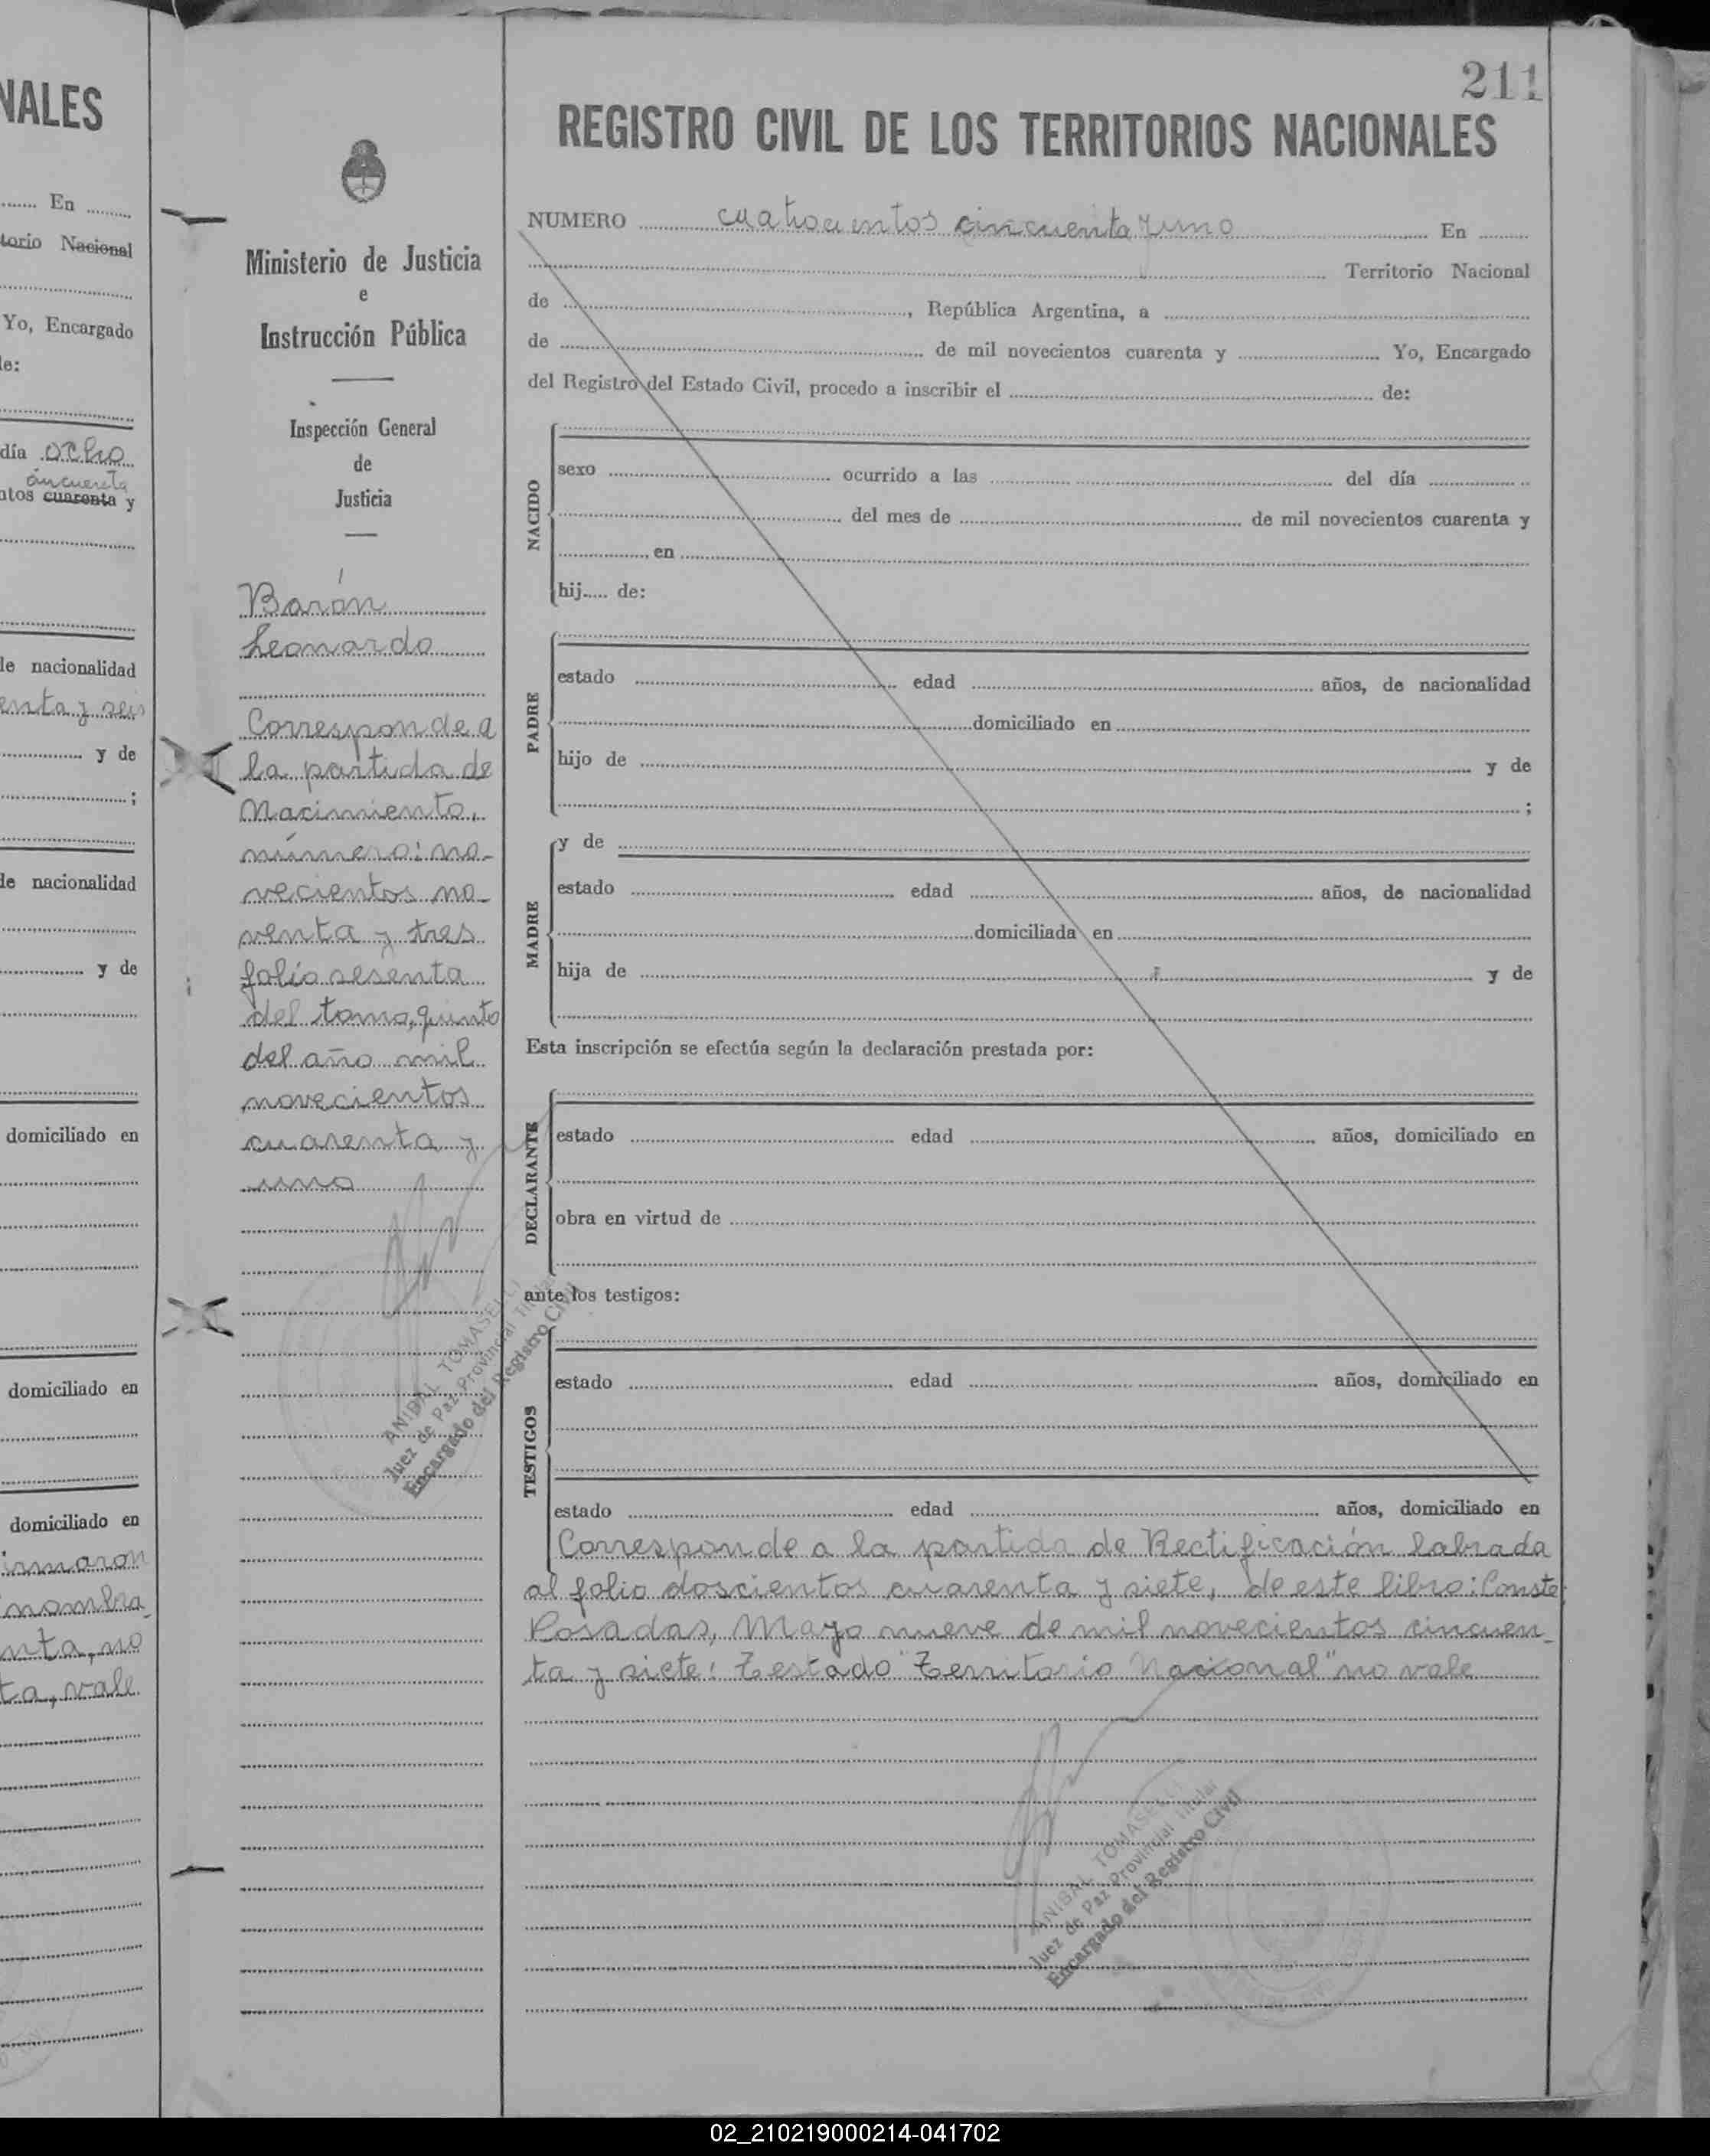 NALES
En
torio Nacional
Yo, Encargado
de:
día ocho
cincuenta
ntos cuarenta y
de nacionalidad
enta y seis
y de
;
de nacionalidad
y de
domiciliado en
domiciliado en
domiciliado en
irmaron
nombra-
nta, no
ta, vale.
Ministerio de Justicia
e
Instrucción Pública
Inspección General
de
Justicia
Barón
Leonardo
Corresponde a
la partida de
Nacimiento,
número: no-
vecientos no-
venta y tres
folio sesenta
del tomo, quinto
del año mil
novecientos
cuarenta y
uno
ANIBAL TOMASELLI
Juez de Paz Provincial Titular
Encargado del Registro Civil
211
REGISTRO CIVIL DE LOS TERRITORIOS NACIONALES
NUMERO cuatrocientos cincuenta y uno En
Territorio Nacional
de , República Argentina, a
de de mil novecientos cuarenta y Yo, Encargado
del Registro del Estado Civil, procedo a inscribir el de:
NACIDO
sexo ocurrido a las del día
del mes de de mil novecientos cuarenta y
, en
hij..... de:
PADRE
estado edad años, de nacionalidad
domiciliado en
hijo de y de
;
MADRE
y de
estado edad años, de nacionalidad
domiciliada en
hija de y de
Esta inscripción se efectúa según la declaración prestada por:
DECLARANTE
estado edad años, domiciliado en
obra en virtud de
ante los testigos:
TESTIGOS
estado edad años, domiciliado en
estado edad años, domiciliado en
Corresponde a la partida de Rectificación labrada
al folio doscientos cuarenta y siete, de este libro: Conste
Posadas, Mayo nueve de mil novecientos cincuen-
ta y siete: Testado "Territorio Nacional" no vale
ANIBAL TOMASELLI
Juez de Paz Provincial Titular
Encargado del Registro Civil
02_210219000214-041702